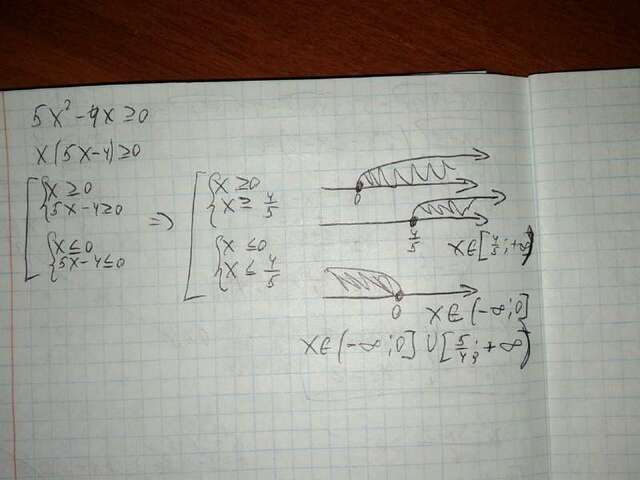 5x² - 4x ≥ 0
x(5x-4) ≥ 0
[ { x ≥ 0
{ 5x - 4 ≥ 0
{ x ≤ 0
{ 5x - 4 ≤ 0
=> [ { x ≥ 0
{ x ≥ 4/5
{ x ≤ 0
{ x ≤ 4/5
0
4/5
x∈[4/5; +∞)
0
x∈(-∞; 0]
x∈(-∞; 0] ∪ [5/4; +∞)